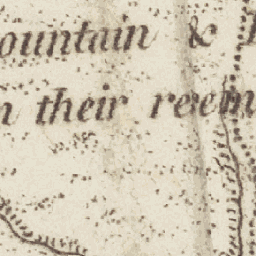 ountain &
n their reem